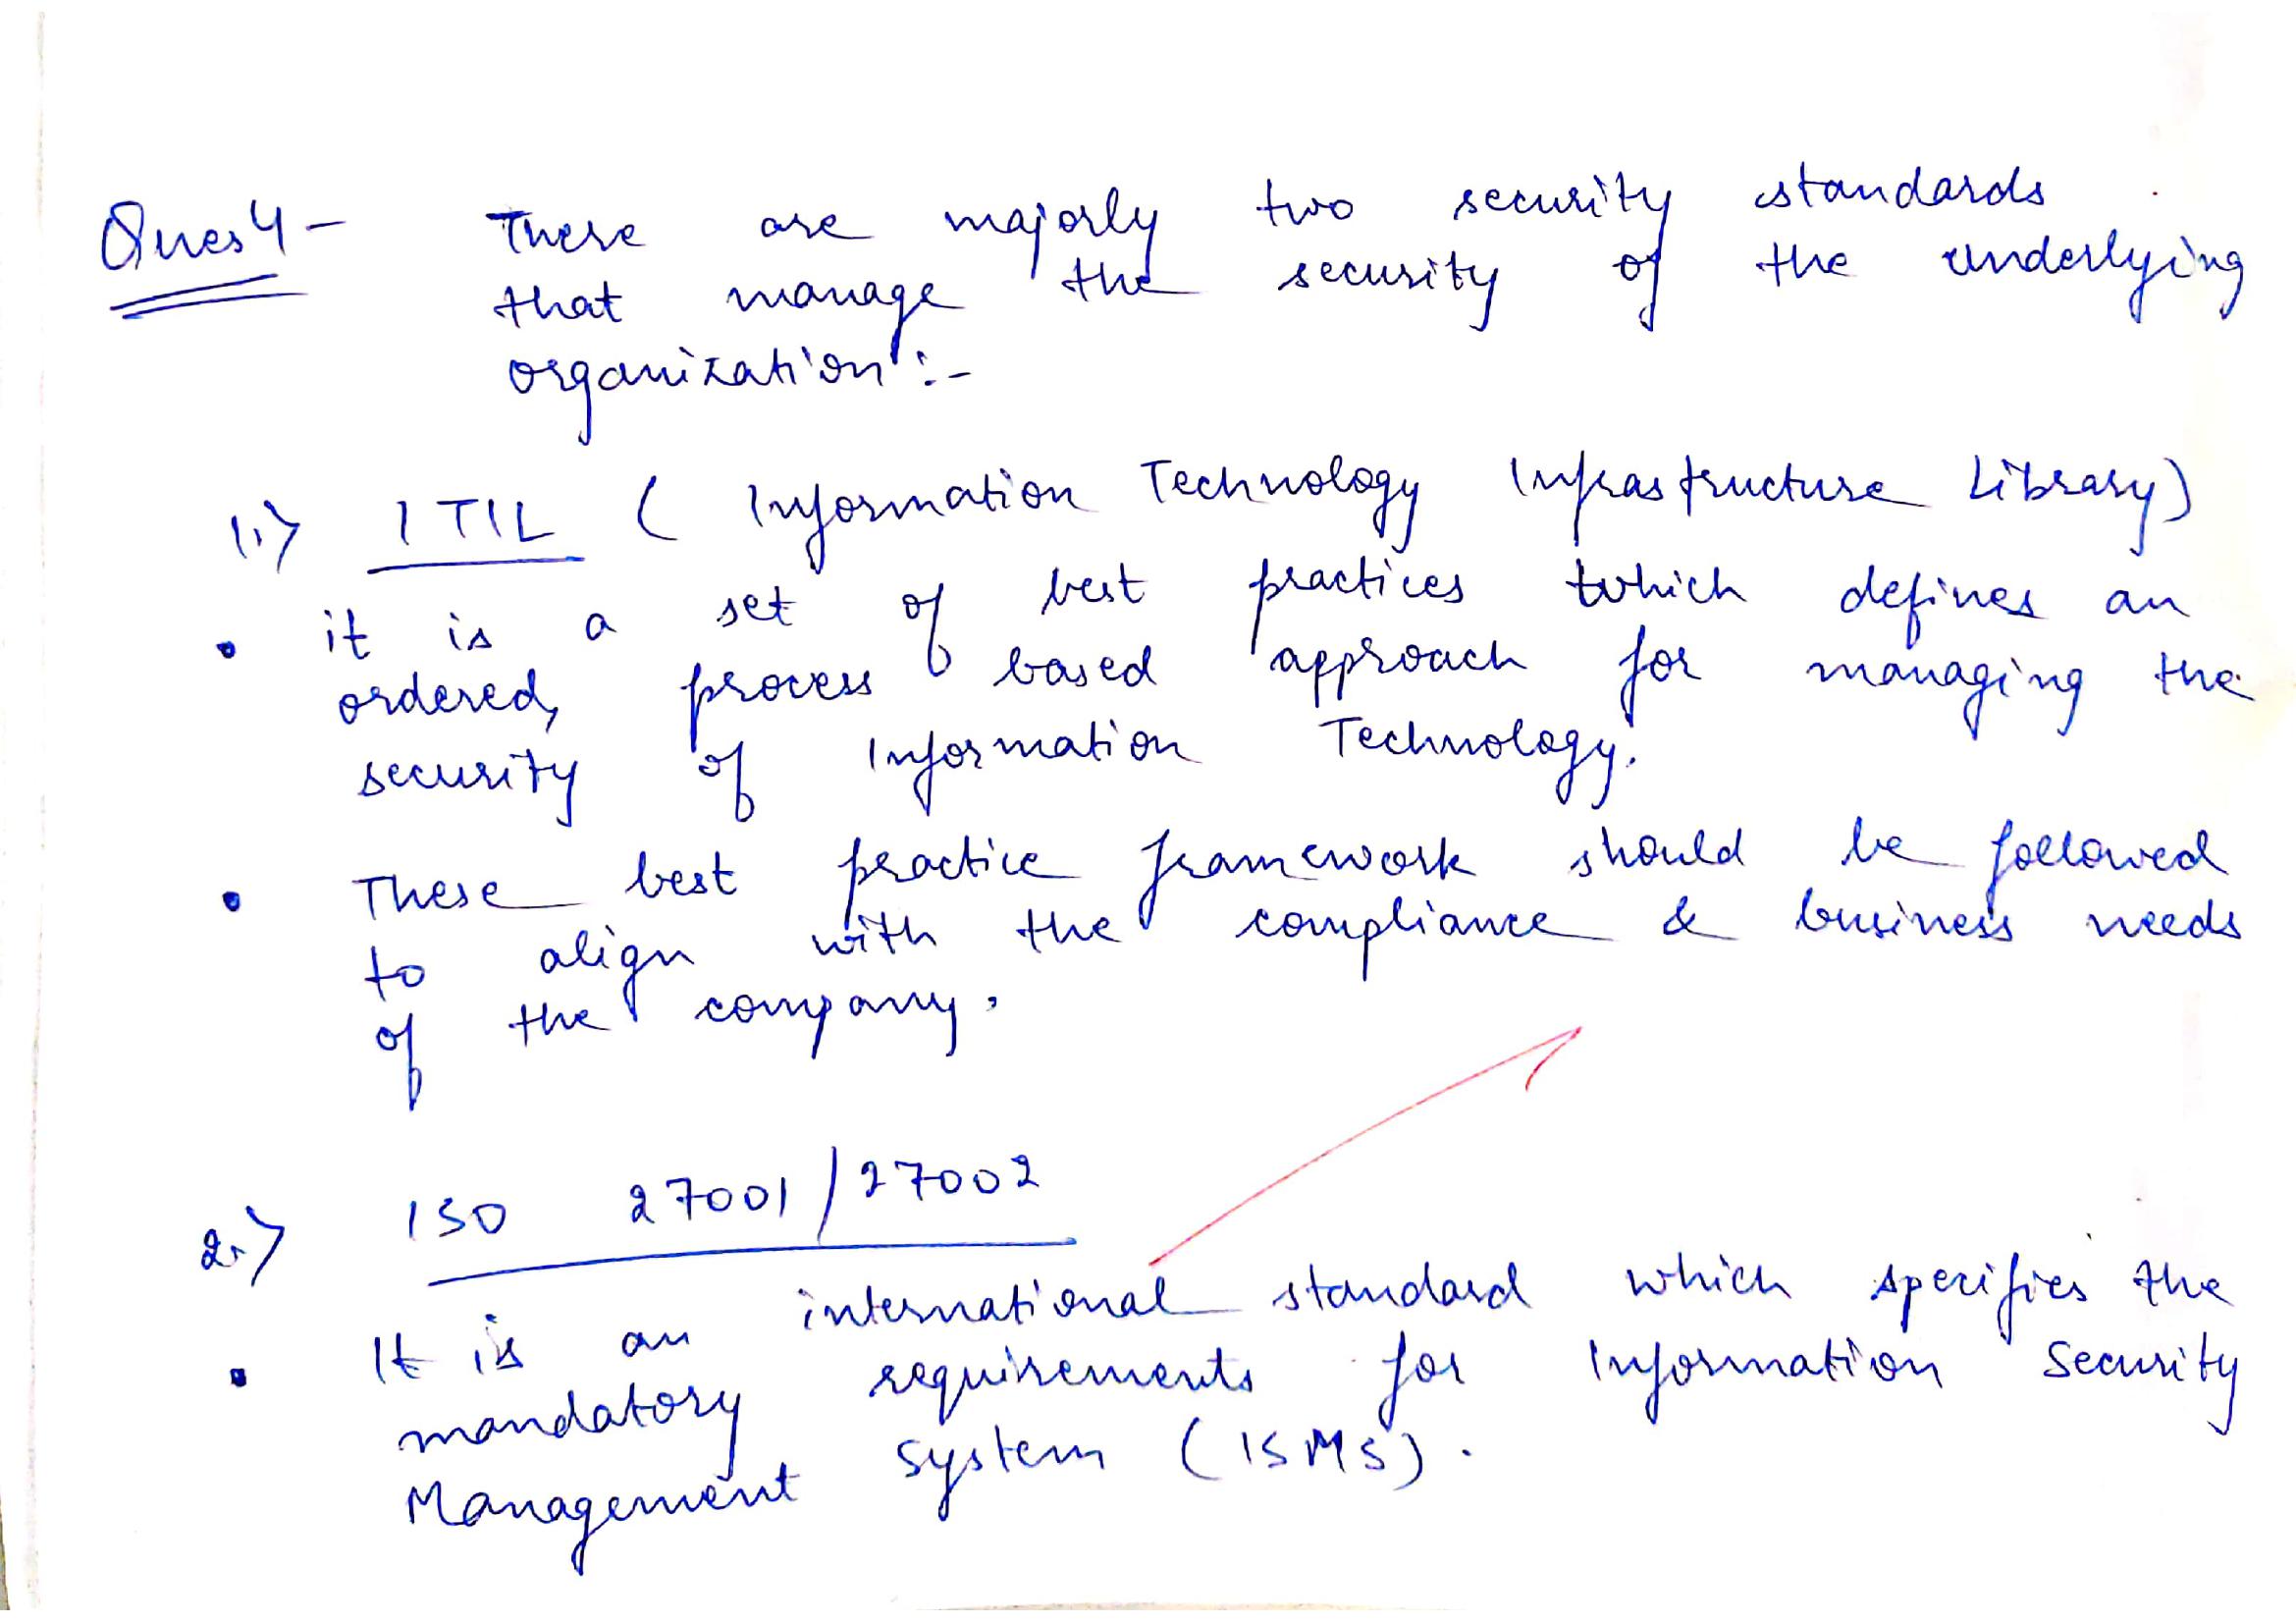 Ques 4 - There are majorly two security standards
that manage the security of the underlying
organization :-
1.) ITIL ( Information Technology Infrastructure Library)
• it is a set of best practices which defines an
ordered, process based approach for managing the
security of Information Technology.
• These best practice framework should be followed
to align with the compliance & business needs
of the company.
2.) ISO 27001/27002
• It is an international standard which specifies the
mandatory requirements for Information Security
Management System (ISMS).